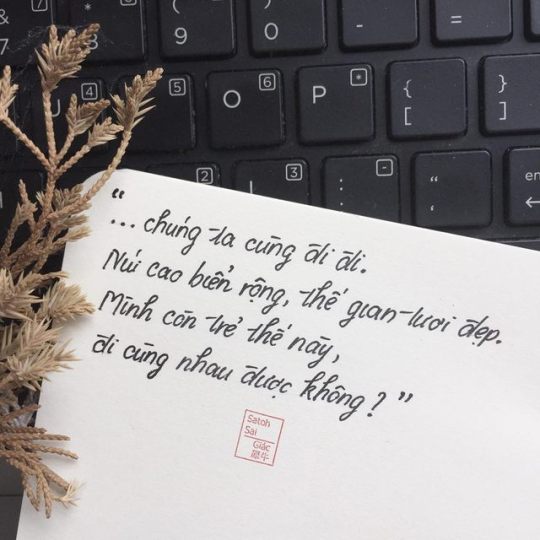 &
7
(
9
)
0
_
-
+
=
4
5
O
6
P
*
{
[
}
]
2
3
:
;
-
“
‘
en
“
... chúng ta cùng đi đi.
Núi cao biển rộng, thế gian tươi đẹp.
Mình còn trẻ thế này,
đi cùng nhau được không? ”
Satoh
Sài
Giác
犀牛